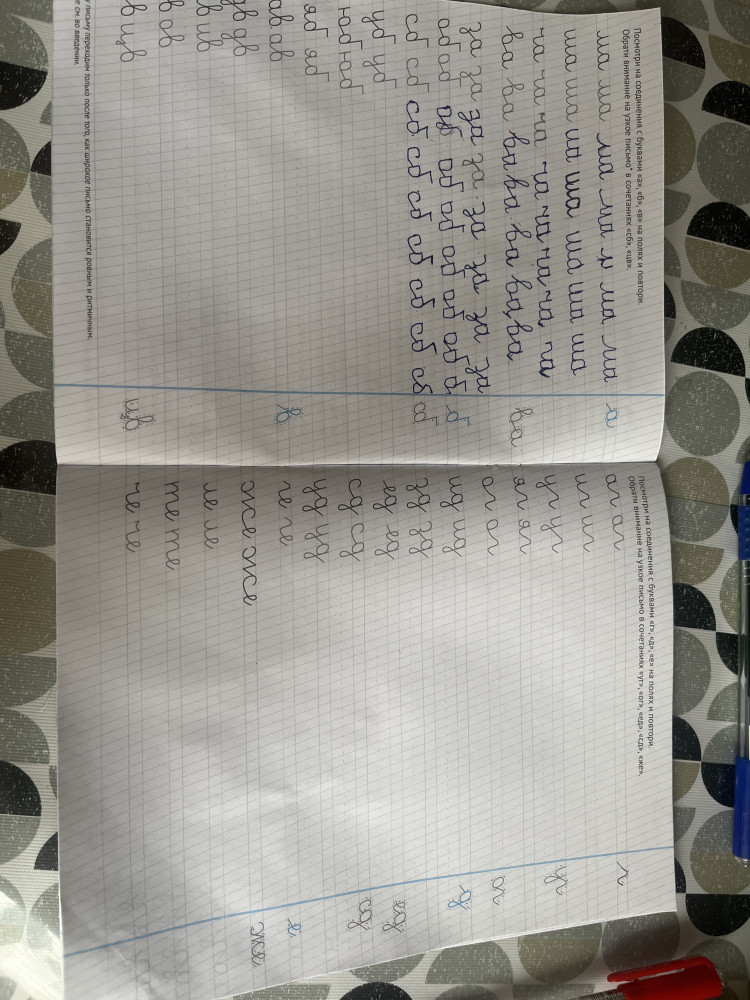 Посмотри на соединения с буквами «а», «б», «в» на полях и повтори.
Обрати внимание на узкое письмо* в сочетаниях «сб», «цв».
ма ма ма ма м ма, ма а
ша ша ша ша ша ша ша
ча ча ча ча ча ча ча, ча
ва ва ва ва ва ва ва ва
за за за за за за за за
об об об об об об об об б б
сб сб сб сб сб сб сб сб сб сб
уб уб
юб юб
яб яб
ав ав в
ив
ов
цв цв
у письму переходим только после того, как широкое письмо становится ровным и ритмичным.
е см. во введении.
Посмотри на соединения с буквами «г», «д», «е» на полях и повтори.
Обрати внимание на узкое письмо в сочетаниях «уг», «ог», «ед», «сд», «же».
аг аг г
иг иг
уг уг уг
яг яг
ог ог ог
ид ид д
зд зд
ед ед ед
сд сд сд
уд уд
ге ге е
же же же
ле ле
те те
че че